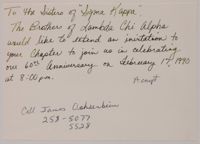 To the Sisters of "Sigma Kappa"
The Brothers of Lambda Chi Alpha
would like to extend an invitation to
your Chapter to join us in celebrating
our 60th Anniversary on February 17, 1990
at 8:00 pm.
Accept
Call James
253-5077
5528